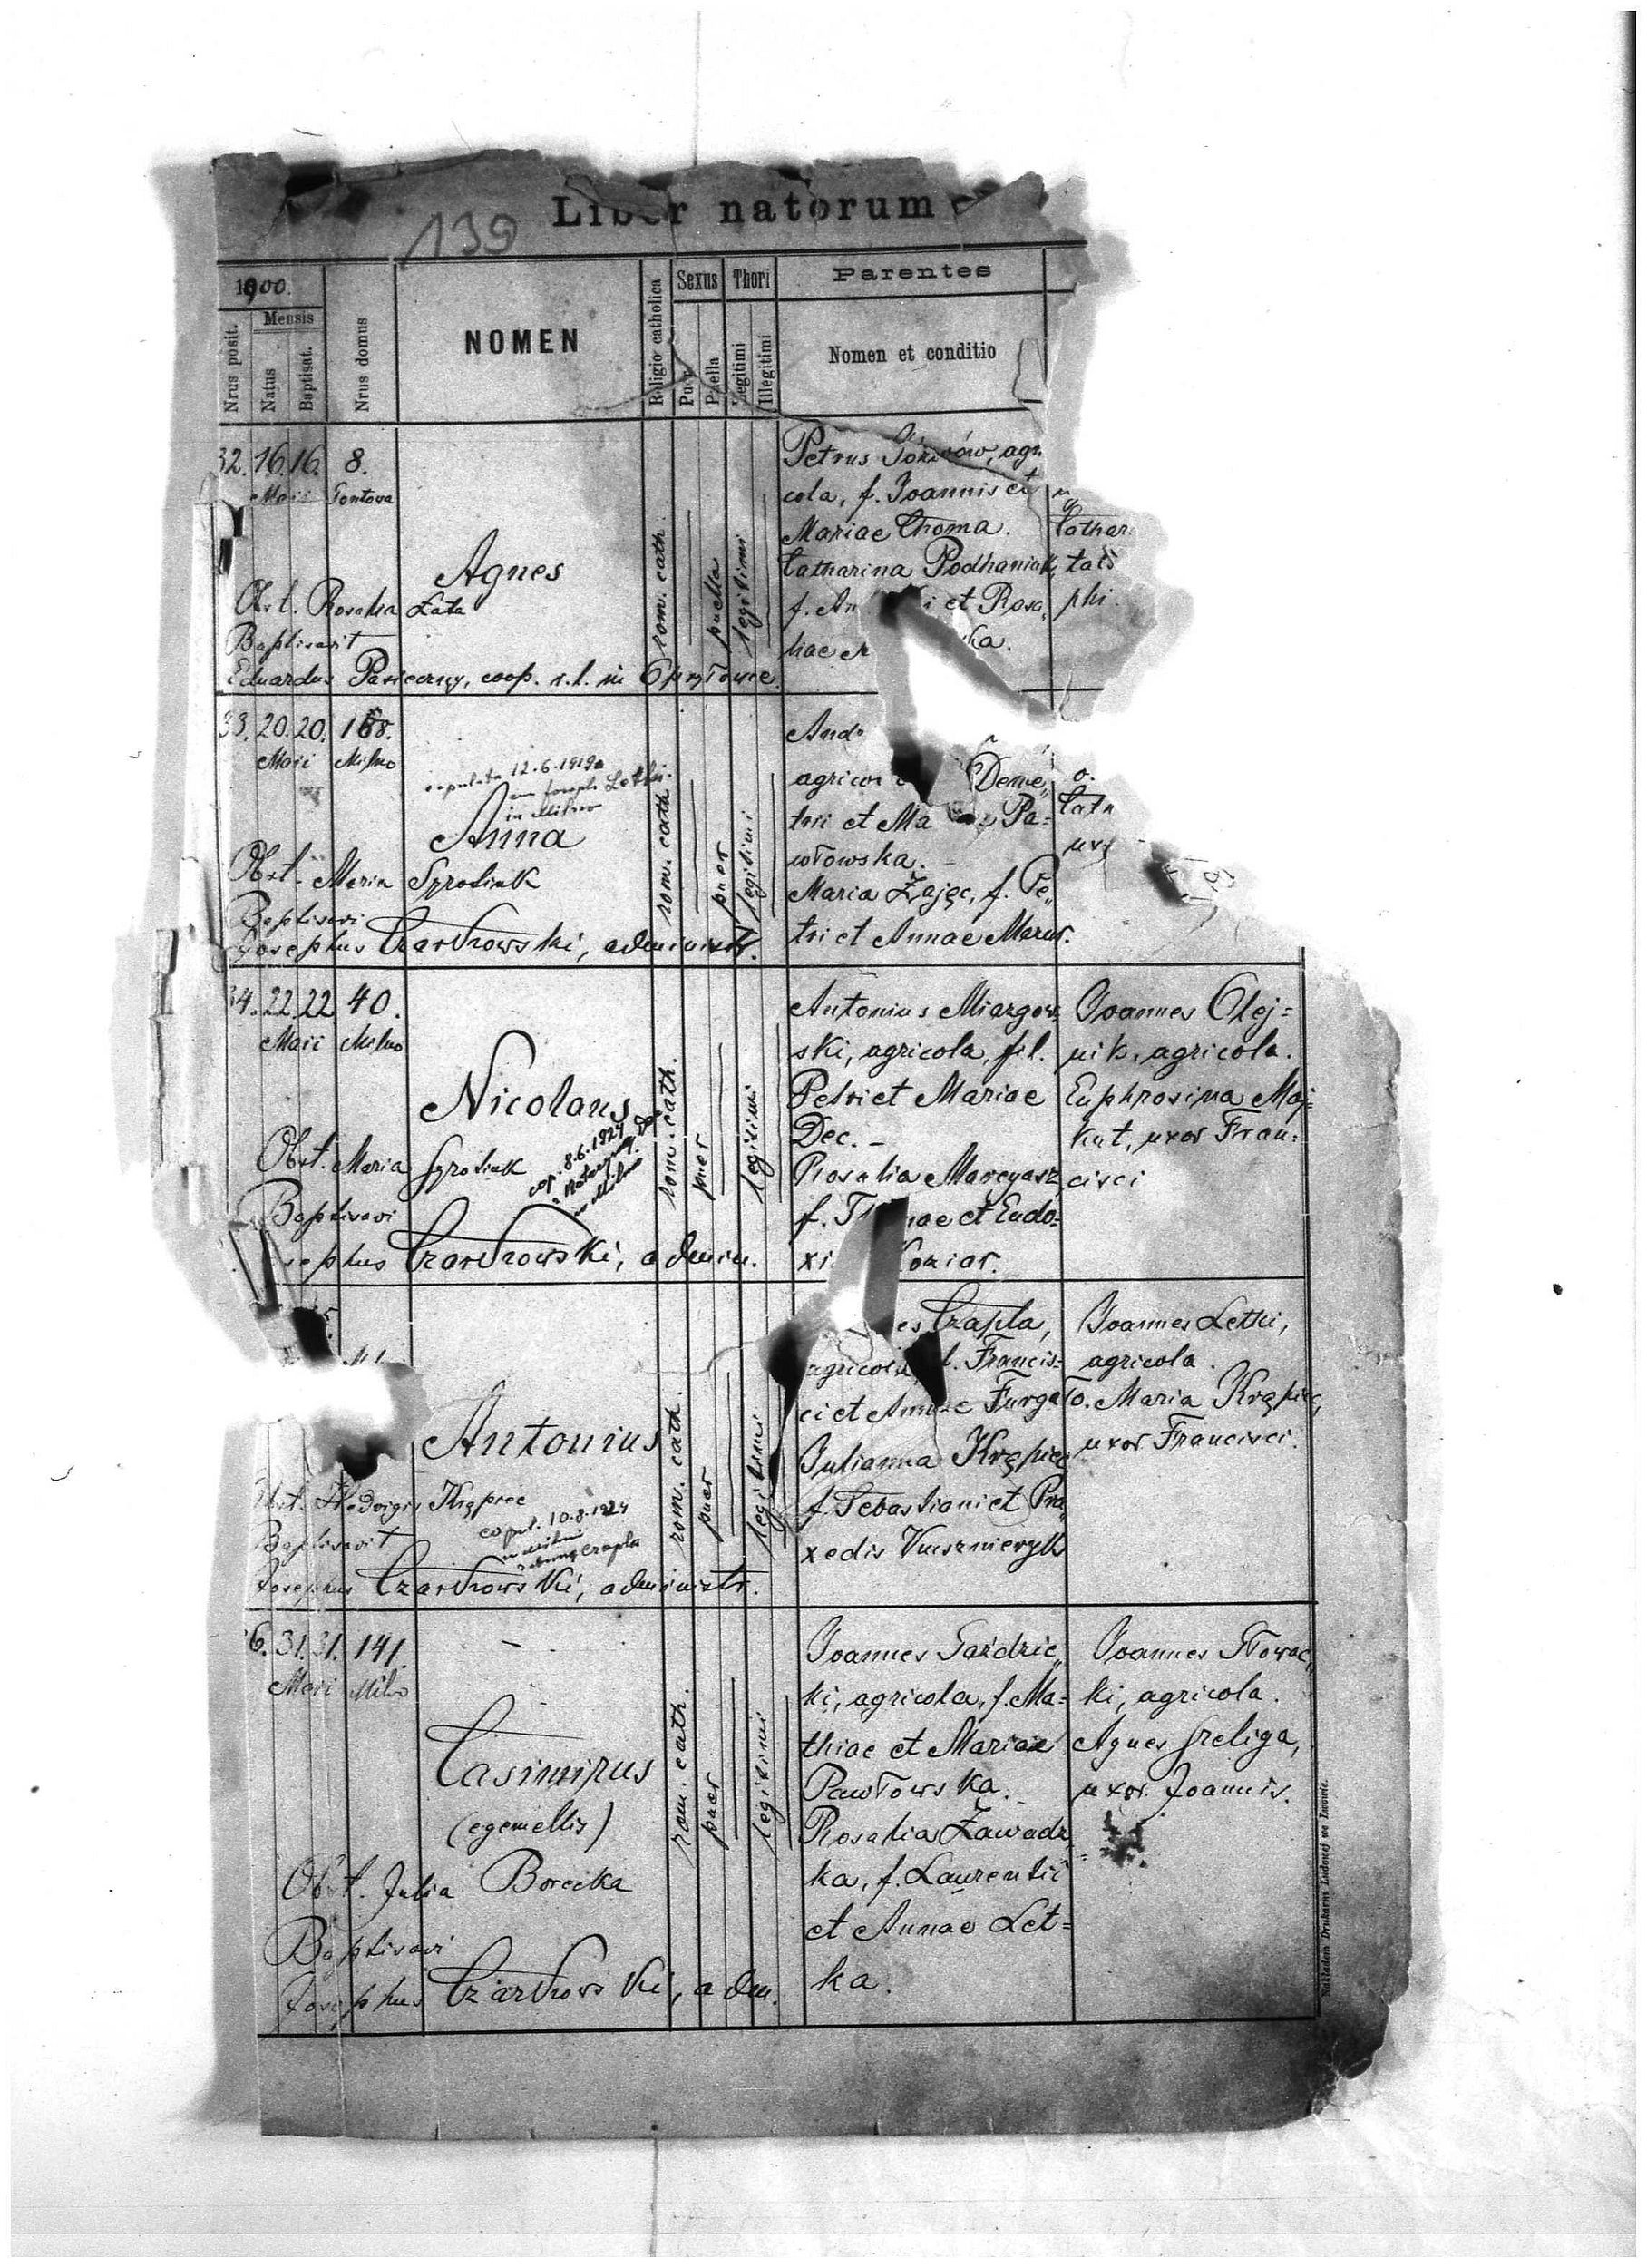 Liber natorum
139
1900.
Sexus
Thori
Parentes
Mensis
Nrus posit.
Natus
Baptisat.
Nrus domus
NOMEN
Religio catholica
Puer
Puella
Legitimi
Illegitimi
Nomen et conditio
32. 16. 16. 8.
Maii
Agnes
Obst. Rosalia Łata
Baptisavit
Eduardus Pasieczny, coop. r. l. in
rom. cath.
puella
legitimi
Petrus agri
cola, f. Joannis et
Mariae Choma.
Catharina Podhaniuk,
f. An i et Rosa,
liae ka.
Cathar
phi
33. 20. 20. 168.
Maii Milno
copulata 12.6.1919
cum Josepho Letki
in Milno
Anna
Obst. Maria Syrotiuk
Baptisavi
Josephus Czartkowski, administr.
rom. cath.
puer
legitimi
And
agrico Deme„
tri et Ma Pa=
włowska.
Maria Zając, f. Pe„
tri et Annae Mazur.
Cat
ux
34. 22. 22 40.
Maii Milno
Nicolaus
cop. 8.6.1924
in Milno
Obst. Maria Syrotiuk
Baptisavi
sephus Czartkowski, admin.
rom. cath.
puer
legitimi
Antonius Miazgow
ski, agricola, fil.
Petri et Mariae
Dec. –
Rosalia Marcyasz
f. T mae et Eudo=
xi oziar.
Joannes Olej=
nik, agricola.
Euphrosina Maj=
kut, uxor Fran=
cisci
Antonius
Obst. Hedvigis Krąpiec
copul. 10.8.1924
Czapla
Baptisavit
Josephus Czartkowski, administr.
rom. cath.
puer
legitimi
es Czapla,
agricola, l. Francis=
ci et Annae Furgało.
Julianna Krąpiec
f. Sebastiani et Pra
xedis
Joannes Letki,
agricola.
Maria Krąpiec,
uxor Francisci.
6. 31. 31. 141.
Maii Milno
Casimirus
(e gemellis)
Obst. Julia Borecka
Baptisavi
Josephus Czartkowski, adm.
rom. cath.
puer
legitimi
Joannes Gaździc„
ki, agricola, f. Ma=
thiae et Mariae
Pawłowska.
Rosalia Zawadz=
ka, f. Laurentii
et Annae Let=
ka.
Joannes Nowac„
ki, agricola.
Agnes Szeliga,
uxor Joannis.
Nakładem Drukarni Ludowej we Lwowie.